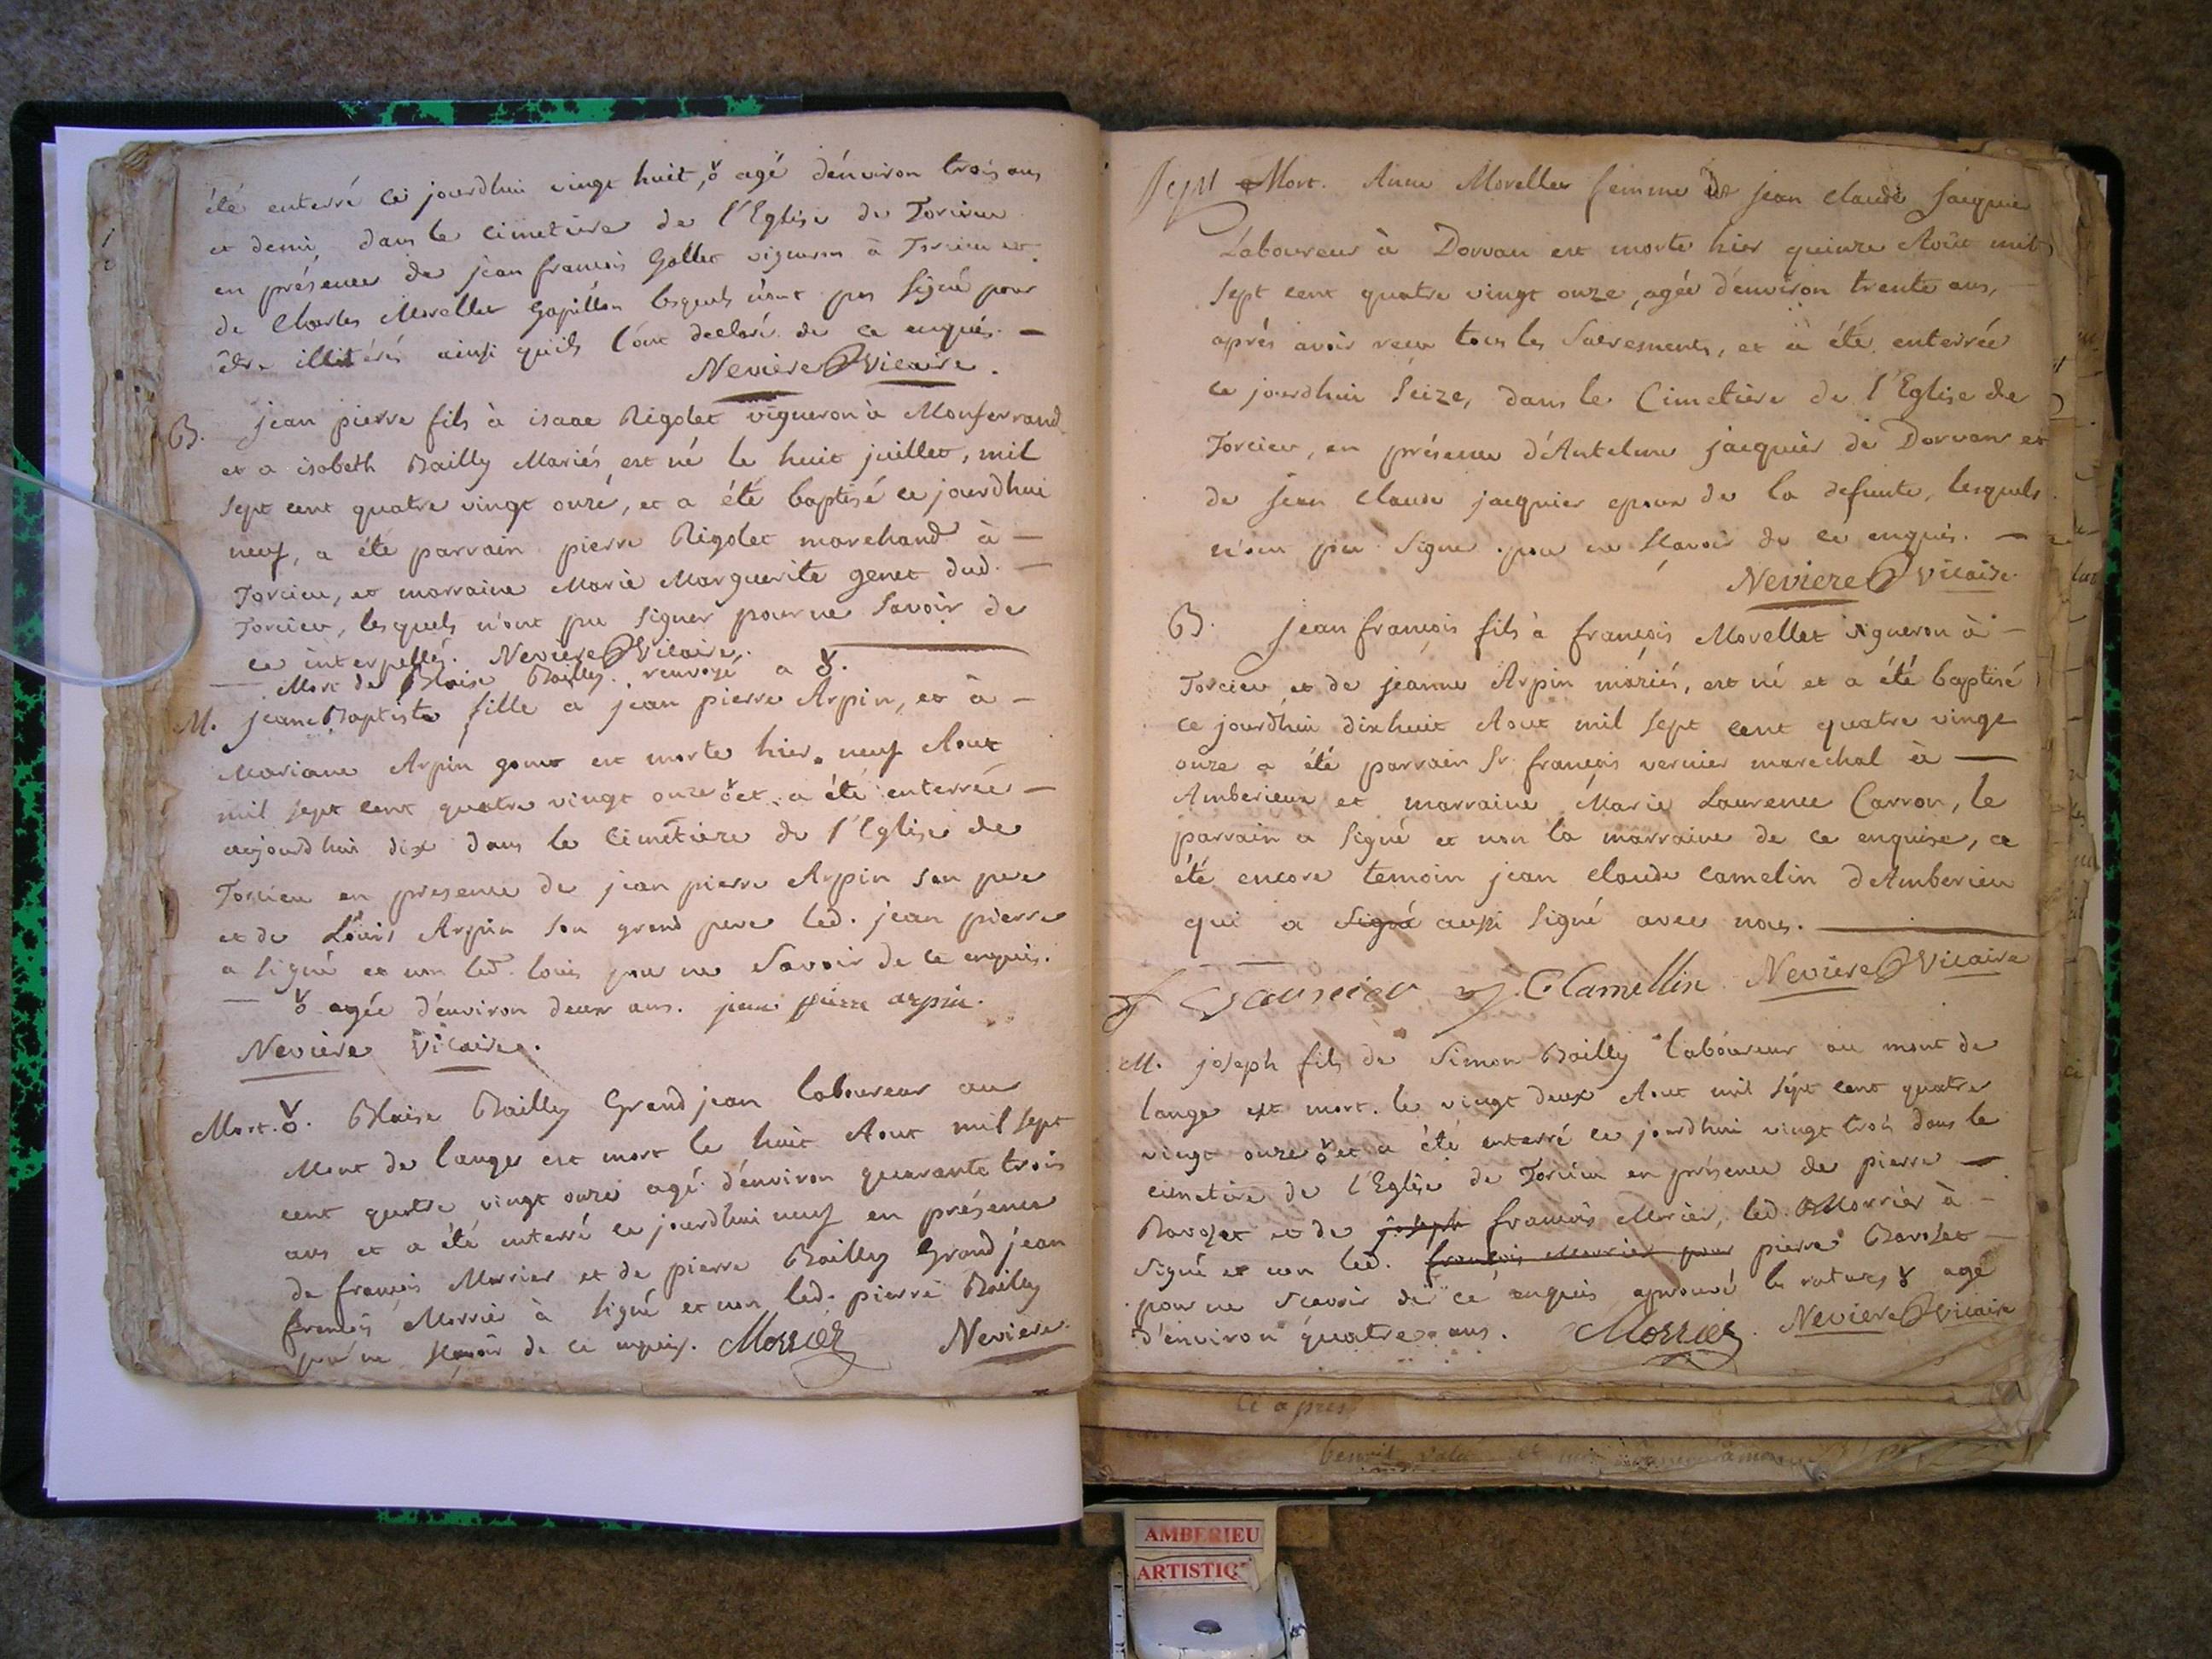 été enterré ce jourdhui vingt huit, agé d'environ trois ans
et demi dans le cimetiere de l'Eglise de Torcieu
en présence de jean françois Gollet vigneron à Torcieu et
de Charles Morellet Gapillon lesquels n'ont pas signé pour
être illitérés ainsi qu'ils l'ont declaré de ce enquis. —
Neviere Vicaire.
B. jean pierre fils à isaac Rigolet vigneron à Monferrand
et a isabeth Bailly Mariés est né le huit juillet, mil
sept cent quatre vingt onze, et a été baptisé ce jourdhui
neuf, a été parrain pierre Rigolet marchand à —
Torcieu, et marraine Marie Marguerite genet dud. —
Torcieu, lesquels n'ont pu signer pour ne savoir de
ce interpellés. Neviere Vicaire.
Mort de Blaise Bailly renvoyé a ꝩ.
M. jeane Baptiste fille a jean pierre Arpin, et à —
Mariane Arpin est morte hier neuf Aout
mil sept cent quatre vingt onze ꝩ et a été enterrée —
aujourdhui dix dans le cimétiere de l'Eglise de
Torcieu en presence de jean pierre Arpin son pere
et de Louis Arpin son grand pere led. jean pierre
a signé et non led. louis pour ne savoir de ce enquis.
— ꝩ agée d'environ deux ans. jean pierre arpin.
Neviere Vicaire.
Mort. ꝩ. Blaise Bailly Grand jean laboureur au
Mont de lange est mort le huit Aout mil sept
cent quatre vingt onze agé d'environ quarante trois
ans et a été enterré ce jourdhui neuf en présence
de françois Morrier et de pierre Bailly Grand jean
françois Morrier à signé et non led. pierre Bailly
pour ne scavoir de ce enquis. Morrier Neviere
Mort. Anne Morellet femme de jean claude jacquier
Laboureur à Dorvan est morte hier quinze Août mil
sept cent quatre vingt onze, agée d'environ trente ans,
aprés avoir recu tous les Sacrements, et a été enterrée
ce jourdhui seize, dans le Cimetiere de l'Eglise de
Torcieu, en présence d'Antelme jacquier de Dorvan et
de jean claude jacquier epoux de la defunte, lesquels
n'ont pu signer pour ne scavoir de ce enquis. —
Neviere Vicaire.
B. jean françois fils à françois Morellet vigneron à —
Torcieu et de jeanne Arpin mariés, est né et a été baptisé
ce jourdhui dixhuit Aout mil sept cent quatre vingt
onze a été parrain Sr. françois vernier marechal à —
Amberieux et marraine Marie Laurence Carron, le
parrain a signé et non la marraine de ce enquise, a
été encore temoin jean claude camelin d'Amberieu
qui a signé aussi signé avec nous.
J. C Camellin Neviere Vicaire
M. joseph fils de Simon Bailly laboureur au mont de
lange est mort le vingt deux Aout mil sept cent quatre
vingt onze ꝩ et a été enterré ce jourdhui vingt trois dans le
cimetiere de l'Eglise de Torcieu en présence de pierre —
Ravozet et de joseph françois Morier, led. Morrier à —
signé et non led. françois Morrier pour pierre Ravozet —
pour ne scavoir de ce enquis aprouvé les ratures ꝩ agé
d'environ quatre ans. Morrier. Neviere Vicaire
ci apres
AMBERIEU
ARTISTIQ